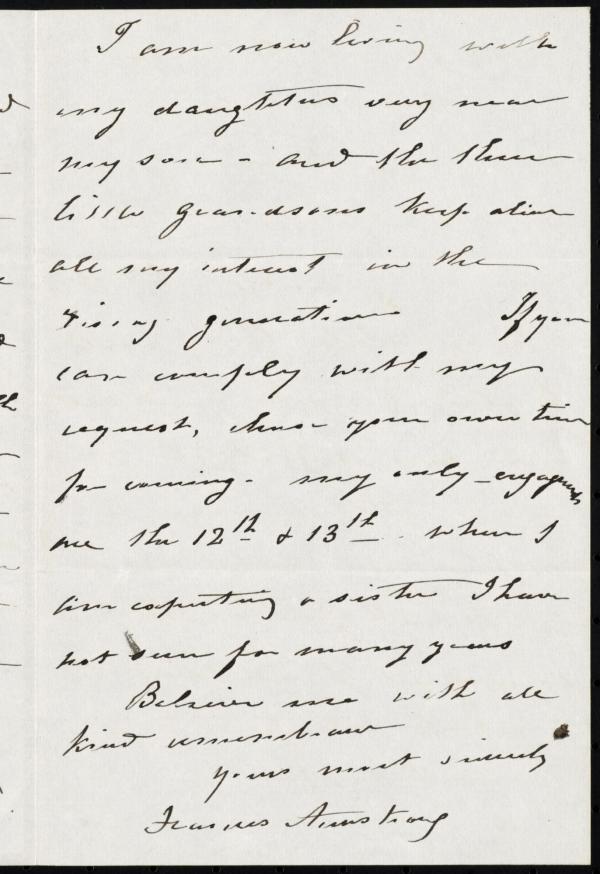 I am now living with
my daughters very near
my son - and the three
little grandsons keep alive
all my interest in the
rising generation If you
can comply with my
request, chuse your own time
for coming - my only engagements
are the 12th & 13th. when I
am expecting a sister I have
not seen for many years
Believe me with all
kind remembrance
yours most sincerely
Frances Armstrong